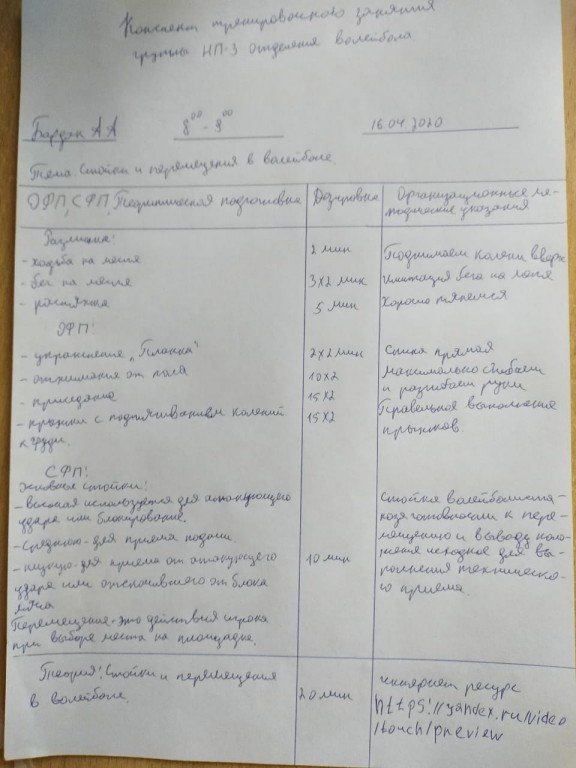 Конспект тренировочного занятия
группы НП-3 отделения волейбола
А А 8 00 - 9 00 16.04.2020
Тема: Стойки и перемещения в волейболе.
ОФП, СФП, Теоритическая подготовка Дозировка Организационные ме-
тодические указания
Разминка!
- ходьба на месте 2 мин Поднимаем колени вверх
- бег на месте 3х2 мин имитация бега на месте
- растяжка 5 мин Хорошо тянемся
ОФП!
- упражнение "Планка" 2х2 мин Спина прямая
- отжимания от пола 10х2 Максимально сгибаем
и разгибаем руки
- приседание 15х2 Правельное выполнение
- прыжки с подтягиванием коленей 15х2 прыжков
к груди.
СФП!
стойки!
- высокая используется для атакующего Стойка волейболиста-
удара или блокирование. готовности к пере-
- среднюю - для приема подачи. мещению и выводу
- низкую - для приема от атакующего 10 мин исходное для вы-
удара или отскочившего от блока полнения техническо-
мяча го приема.
Перемещение - это действия игрока
при выборе места на площадке.
Теория! Стойки и перемещения 20 мин интернет ресурс
в волейболе. https!//yandex.ru/video
/touch/preview